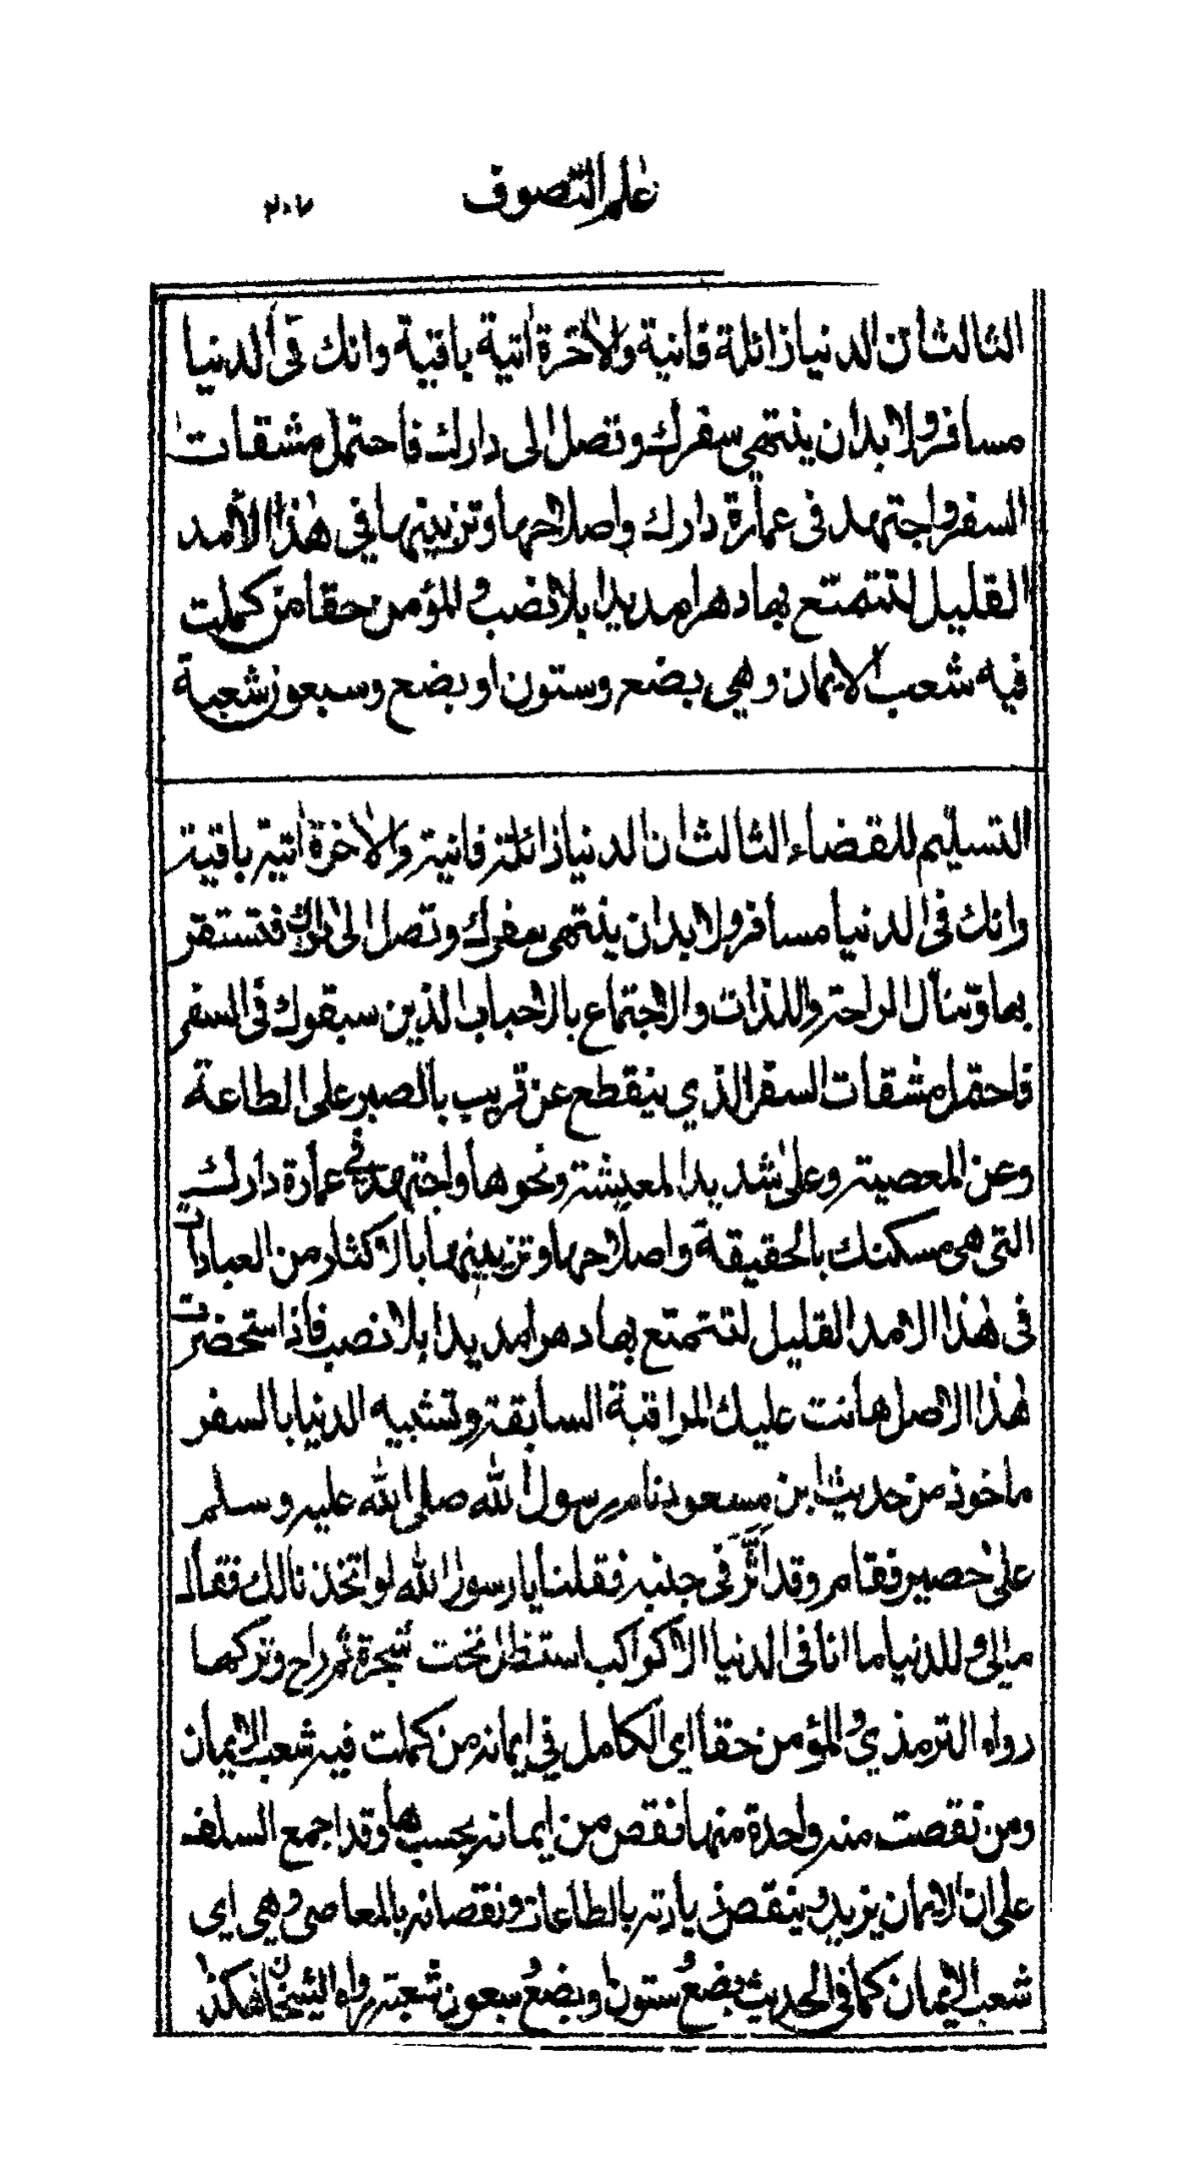 علم التصوف ٢٠٧
الثالث أن الدنيا زائلة فانية والآخرة آتية باقية وانك فى الدنيا
مسافر ولا بد ان ينتهي سفرك وتصل الى دارك فاحتمل مشقات
السفر واجتهد فى عمارة دارك واصلاحها وتزيينها في هذا الأمد
القليل لتتمتع بها دهرا مديدا بلا نصب والمؤمن حقا من كملت
فيه شعب الايمان وهي بضع وستون او بضع وسبعون شعبة
التسليم للقضاء الثالث ان الدنيا زائلة فانية والآخرة آتية باقية
وانك فى الدنيا مسافر ولا بد ان ينتهى سفرك وتصل الى دارك فتستقر
بها وتنال الراحة واللذات والاجتماع بالاحباب الذين سبقوك فى السفر
فاحتمل مشقات السفر الذي ينقطع عن قريب بالصبر على الطاعة
وعن المعصية وعلى شديد المعيشة ونحوها واجتهد في عمارة دارك
التى هى مسكنك بالحقيقة واصلاحها وتزيينها بالاكثار من العبادات
فى هذا الامد القليل لتتمتع بها دهرا مديدا بلا نصب فاذا استحضرت
هذا الاصل هانت عليك المراقبة السابقة وتشبيه الدنيا بالسفر
ماخوذ من حديث ابن مسعود نام رسول الله صلى الله عليه وسلم
على حصير فقام وقد أثّر فى جنبه فقلنا يا رسول الله لو اتخذنا لك فقال
مالى وللدنيا ما انا فى الدنيا الا كراكب استظل تحت شجرة ثم راح وتركها
رواه الترمذي والمؤمن حقا اى الكامل في ايمانه من كملت فيه شعب الايمان
ومن نقصت منه واحدة منها نقص من ايمانه بحسبها وقد اجمع السلف
على ان الايمان يزيد وينقص زيادته بالطاعات ونقصانه بالمعاصى وهي اى
شعب الايمان كما فى الحديث بضعٌ وستون او بضعٌ وسبعون شعبة رواه الشيخان هكذا